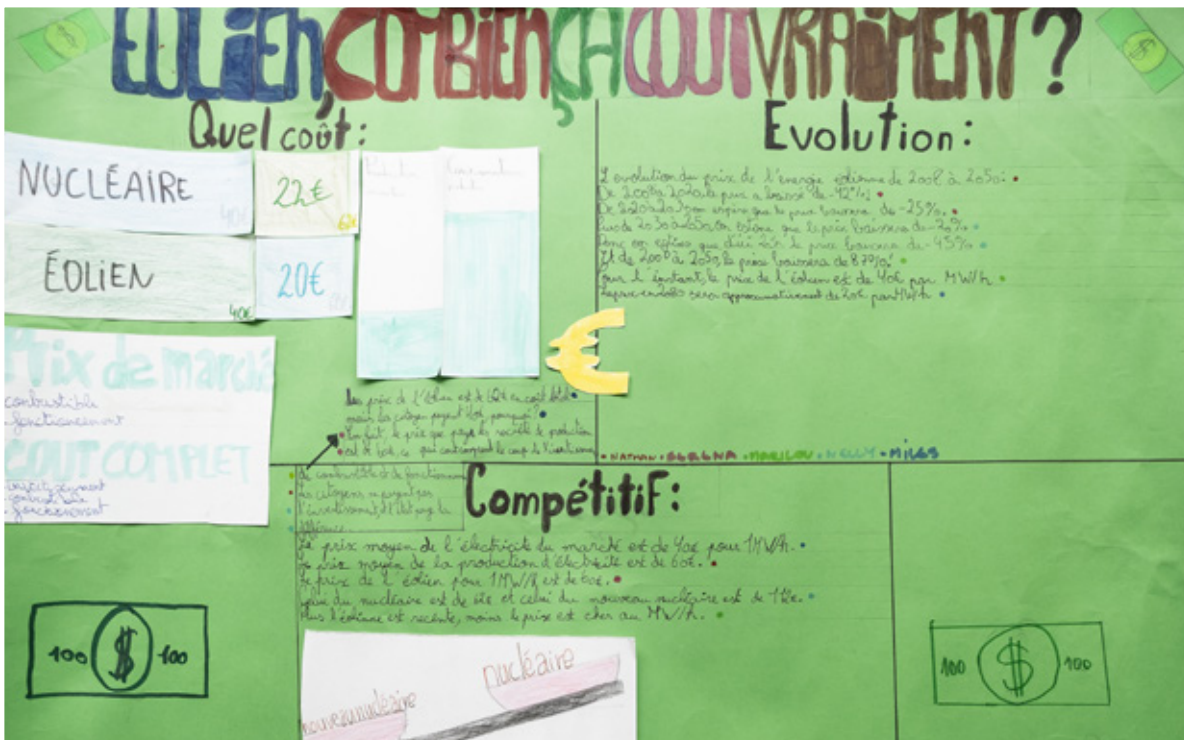 EOLIEN, COMBIEN ÇA COUT VRAIMENT ?
Quel coût :
NUCLÉAIRE
40€
22€
62€
ÉOLIEN
40€
20€
Prix de marché
combustible
fonctionnement
COUT COMPLET
investissement
combustible
fonctionnement
Le prix de l'éolien est de 60€ en coût total
mais les citoyen payent 40€, pourquoi ?
En fait, le prix que paye les société de production
est de 60€, ce qui comprend le coup de l'investissement
de combustible et de fonctionnement
les citoyens ne payent pas
l'investissement, l'état paye la
différence.
Evolution :
L'evolution du prix de l'énergie éolienne de 2008 à 2050 :
De 2008 à 2020, le prix a baissé de -42%!
De 2020 à 2030 on espère que le prix baissera de -25%.
de 2030 à 2050, on estime que le prix baissera de -20%
Donc on espère que d'ici le prix baissera de -45%
Et de 2008 à 2050, le prix baissera de 87%!
Pour l'instant, le prix de l'éolien est de 40€ par MW/h.
Le prix en 2050 sera approximativement de 20€ par MW/h.
NATHAN • • MARILOU • NELLY • MILES
Compétitif :
Le prix moyen de l'électricité du marché est de 40€ pour 1MW/h.
Le prix moyen de la production d'électricité est de 60€.
Le prix de l'éolien pour 1MW/h est de 60€.
Celui du nucléaire est de 62€ et celui du nouveau nucléaire est de 112€.
Plus l'éolienne est recente, moins le prix est cher au MW/h.
nucléaire
nouveau nucléaire
100 $ 100
100 $ 100